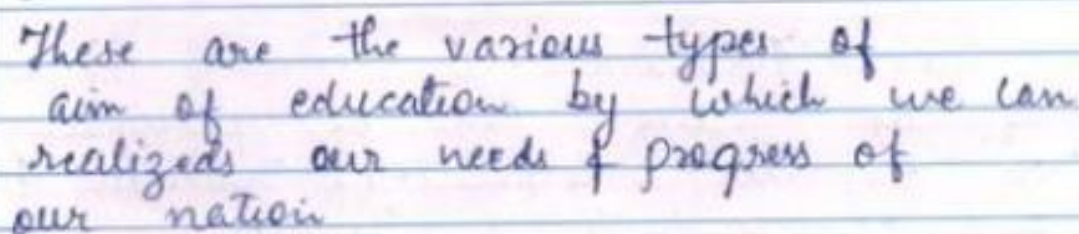 These are the various types of
aim of education by which we can
realizeds our needs & progress of
our nation